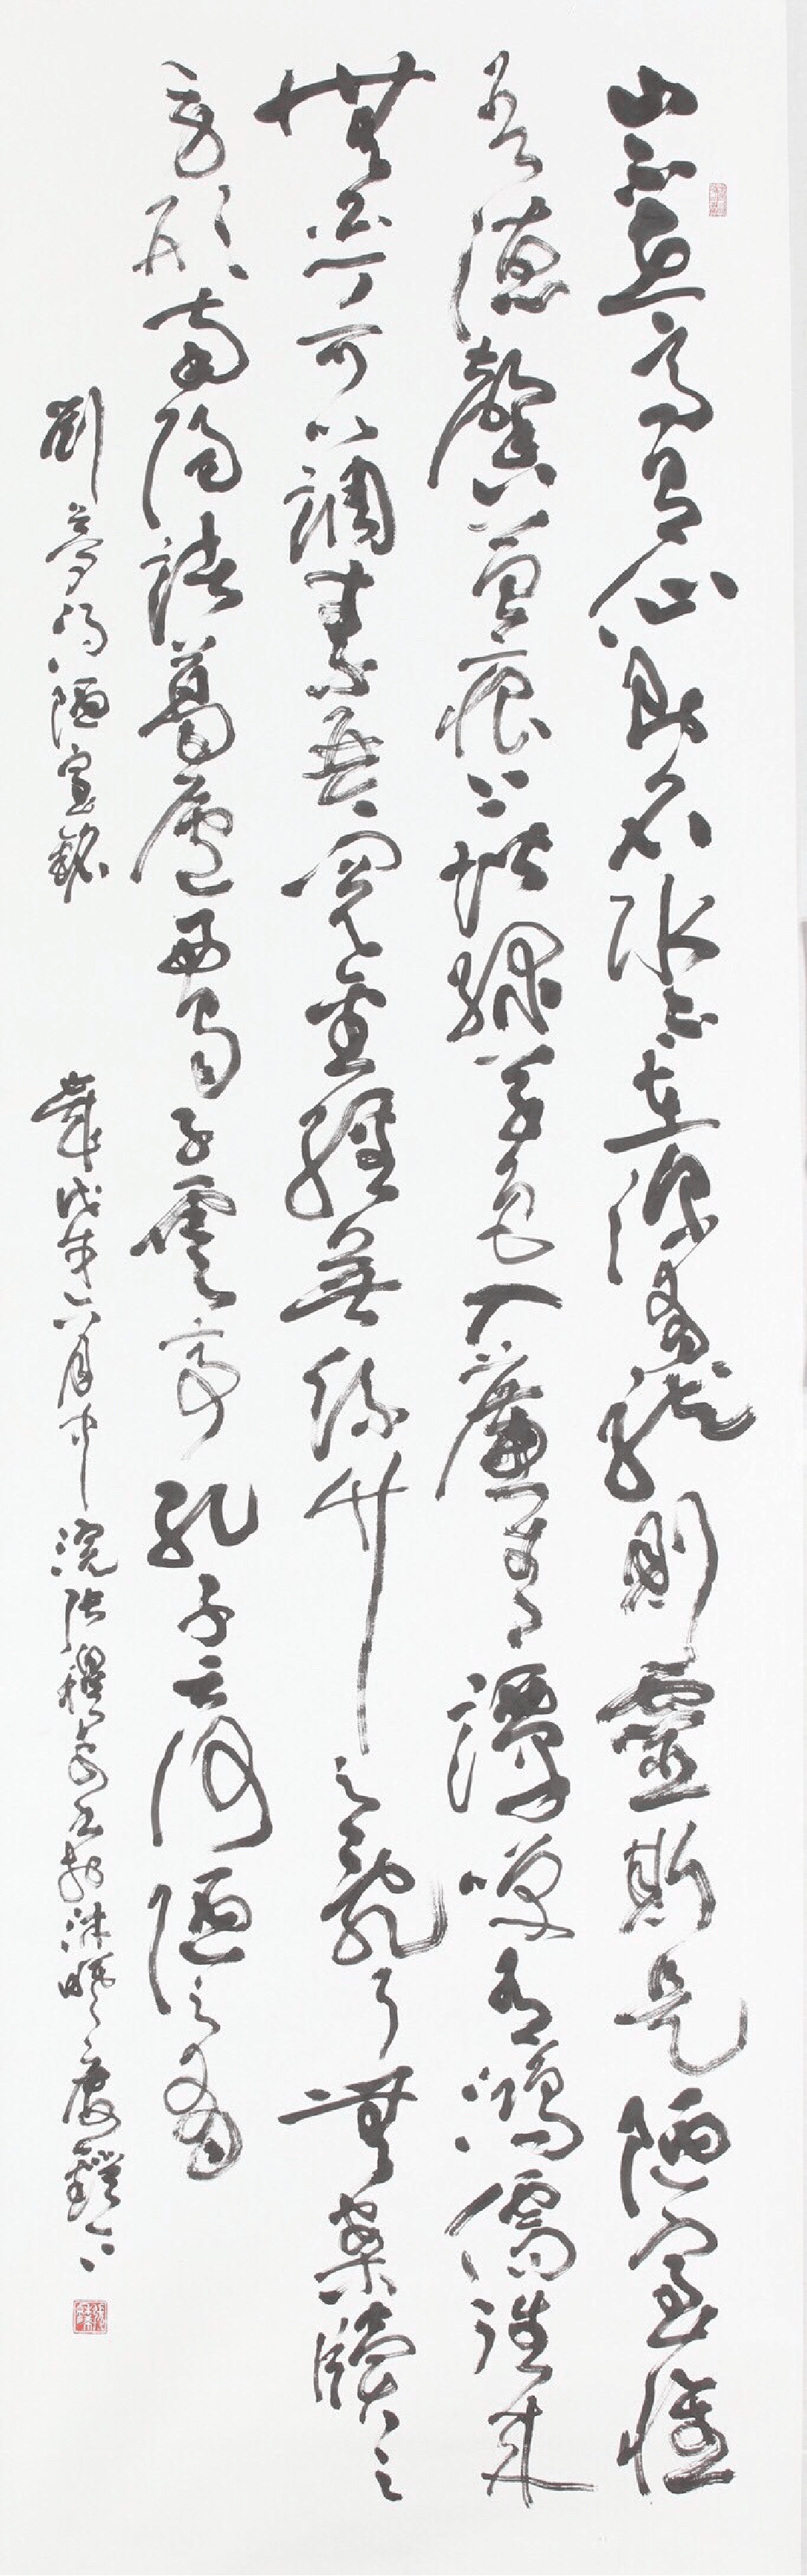 山不在高有仙則名水不在深有龍則靈斯是陋室惟
吾德馨苔痕上堦緑草色入簾青譚咲有鴻儒往来
無白丁可以調素琴閱金經無絲竹之亂耳無案牘之
勞形南陽諸葛廬西蜀子雲亭孔子云何陋之有
劉夢得陋室銘
歲戊戌六月中浣張